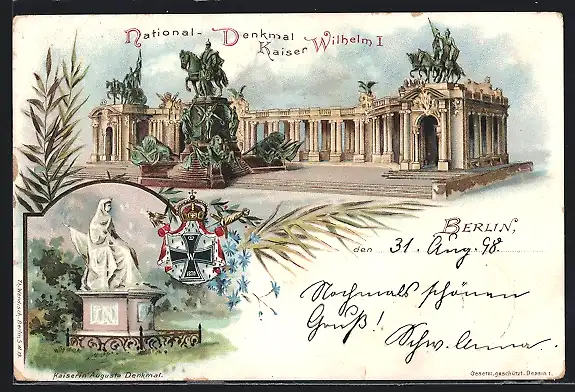 National-Denkmal
Kaiser Wilhelm I
BERLIN,
den 31. Aug. 98.
Nochmals schönen
Gruß!
Schw. Anna.
W
1870
Kaiserin Augusta Denkmal.
Gesetzl. geschützt. Dessin 1.